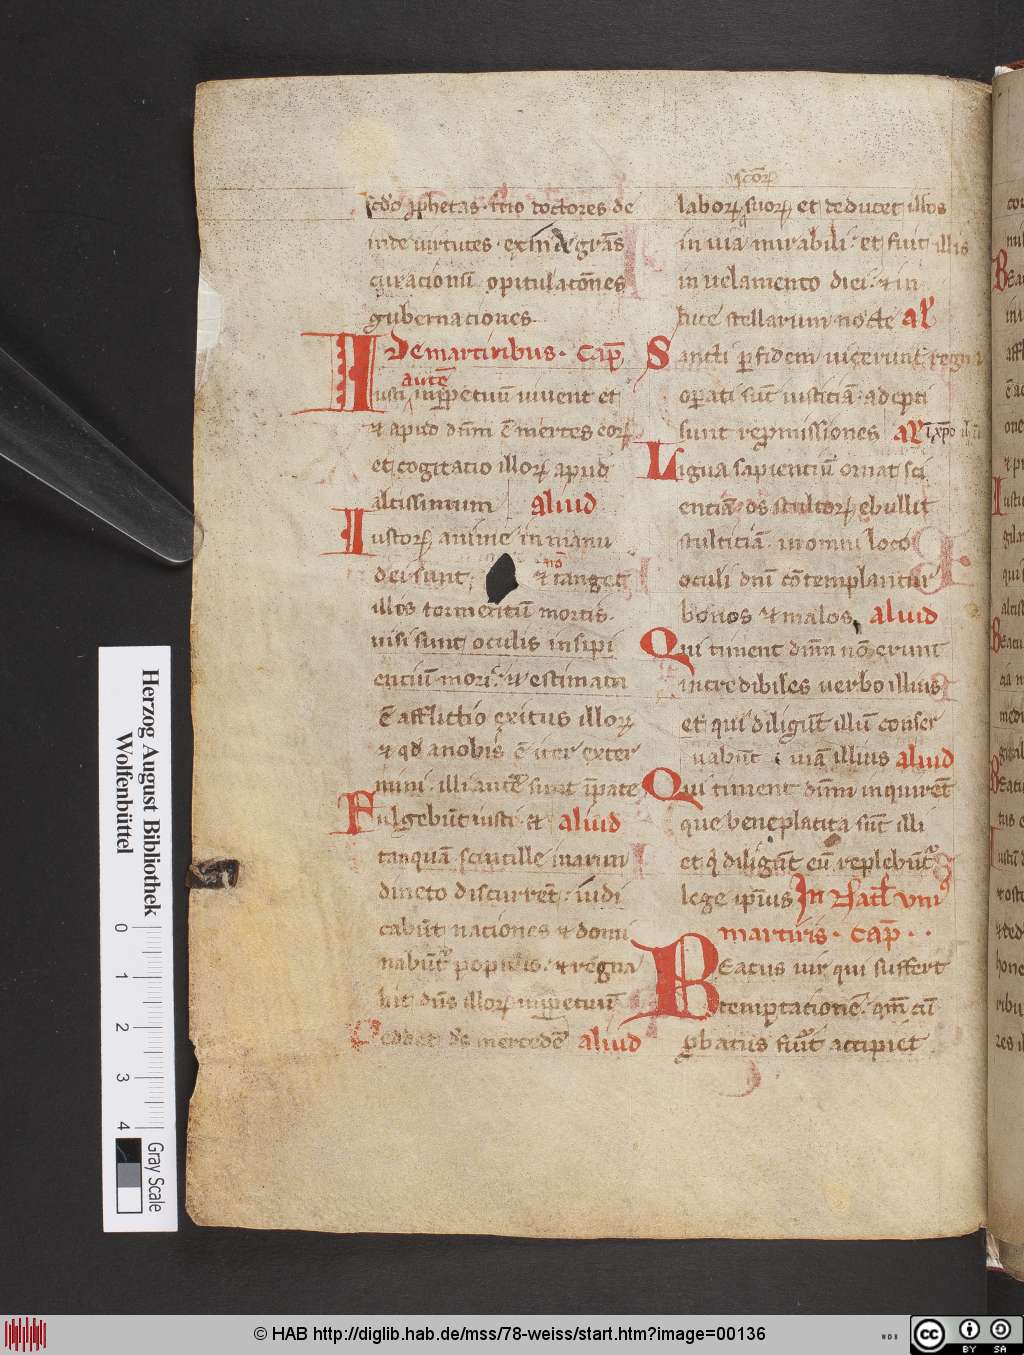 scdo prophetas · tcio doctores de
inde uirtutes · exinde gras
curacionu opitulatones
gubernaciones
De martiribus · Cap
Iusti aute inperpetuu uiuent et
et apud dnm e merces eor
et cogitatio illor apud
altissimum aliud
Iustor anime in manu
dei sunt · et no tanget
illos tormentu mortis ·
uisi sunt oculis insipi
entiu mori · et estimata
e afflictio exitus illor
et qd a nobis e iter exter
mini · illi aute sunt i pace
Fulgebut iusti · et aliud
tanqua scintille in arun
dineto discurret · iudi
cabut naciones et domi
nabut populis · et regna
bit dns illor inperpetuu
Reddet ds mercede aliud
scor
labor suor et deducet illos
in uia mirabili · et fuit illis
in uelamento diei · et in
luce stellarum nocte al
Sancti p fidem uicerunt regna
opati sut iusticia · adepti
sunt repmissiones al
Ligua sapientiu ornat sci
encia os stultor ebullit
stulticia · in omni loco
oculi dni cotemplantur
bonos et malos aliud
Qui timent dnm no erunt
incredibiles uerbo illius
et qui diligut illu conser
uabut uia illius aliud
Qui timent dnm inquiret
que beneplacita sut illi
et q diligut eu replebut
lege ipius In Natl vni
martiris · Cap · ·
Beatus uir qui suffert
temptatione · qm cu
pbatus fuit accipiet
Herzog August Bibliothek
Wolfenbüttel
0 1 2 3 4
Gray Scale
© HAB http://diglib.hab.de/mss/78-weiss/start.htm?image=00136
WDB
cc BY SA